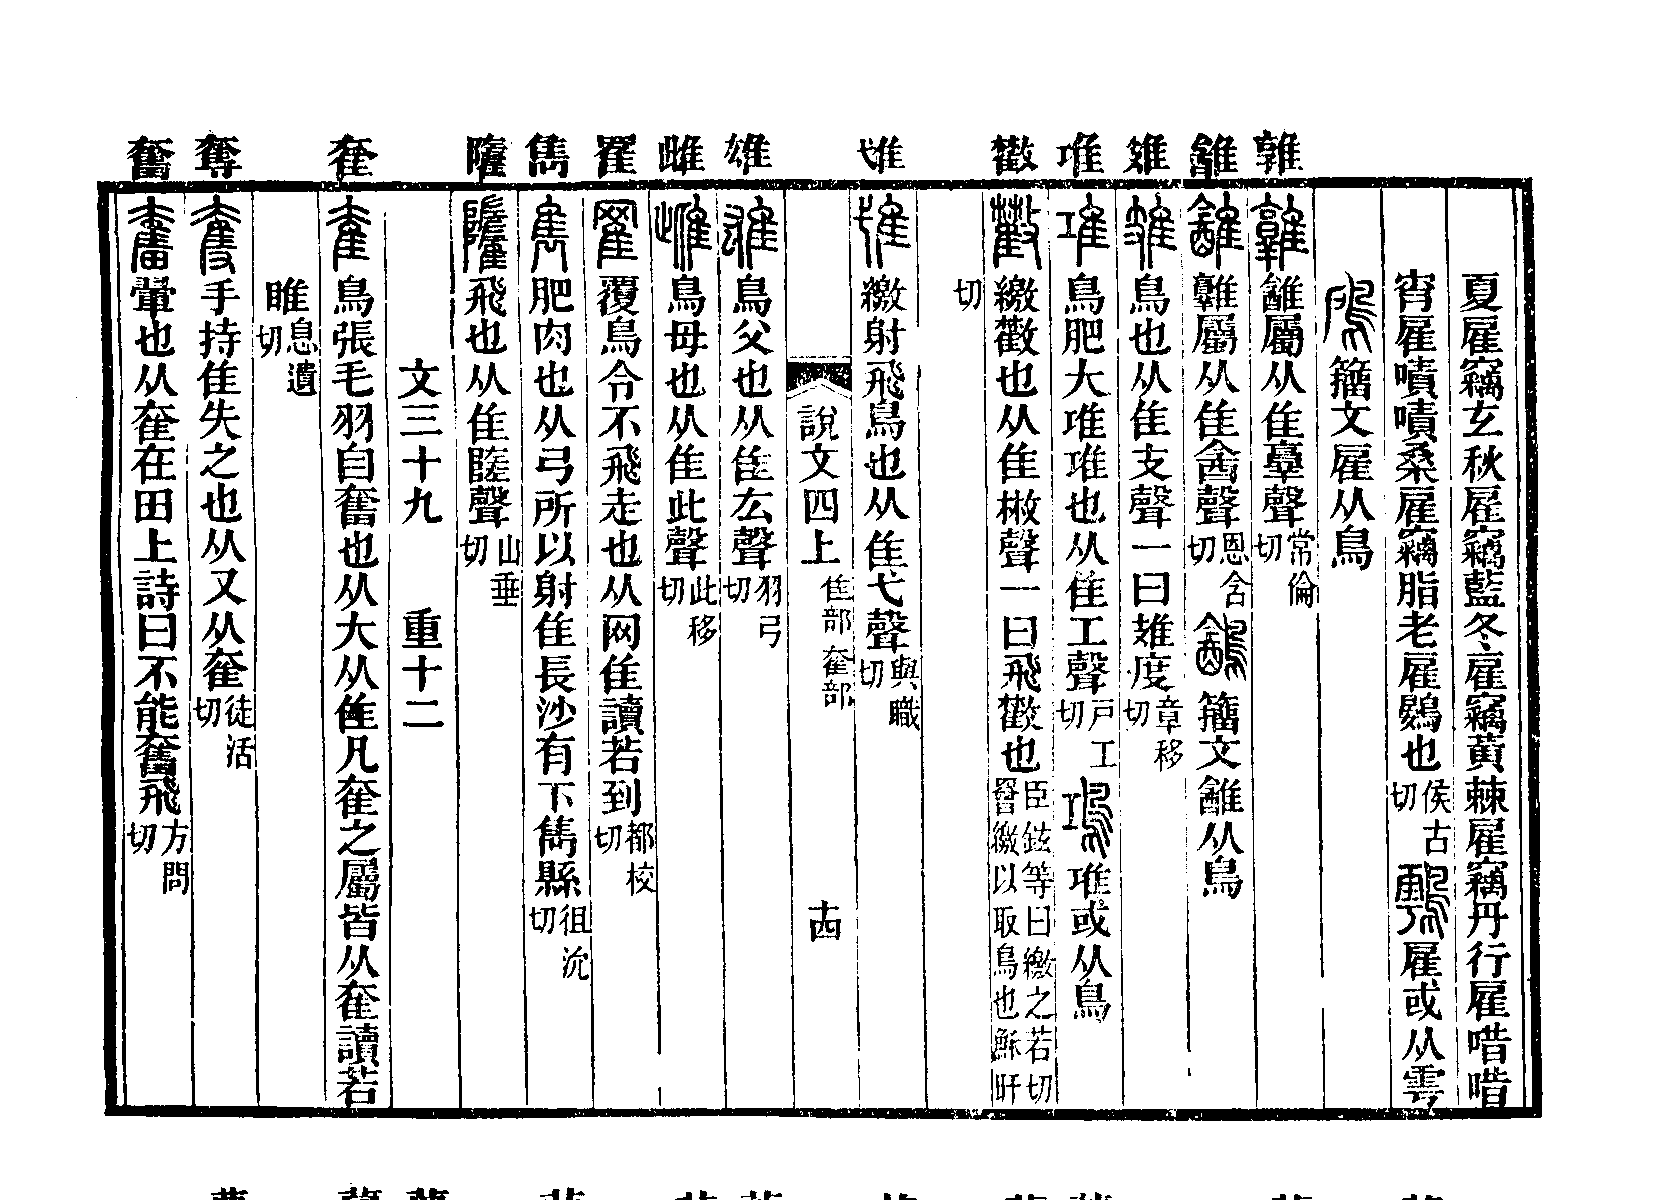 夏雇竊玄秋雇竊藍冬雇竊黃棘雇竊丹行雇唶唶
宵雇嘖嘖桑雇竊脂老雇鷃也侯古切雇或从雩
籒文雇从鳥
屬从隹𦎫聲常倫切
屬从隹酓聲恩含切籒文从鳥
鳥也从隹支聲一曰度章移切
𨾊鳥肥大𨾊𨾊也从隹工聲戶工切𨾊或从鳥
繳也从隹㪔聲一曰飛也臣鉉等曰繳之若切繒繳以取鳥也穌旰
切
隿隿繳射飛鳥也从隹弋聲與職切
說文四上 隹部 奞部 十四
雄雄鳥父也从隹厷聲羽弓切
雌雌鳥母也从隹此聲此移切
覆鳥令不飛走也从网隹讀若到都校切
雋雋肥肉也从弓所以射隹長沙有下雋縣徂沇切
飛也从隹聲山垂切
文三十九 重十二
奞奞鳥張毛羽自奮也从大从隹凡奞之屬皆从奞讀若
睢息遺切
奪奪手持隹失之也从又从奞徒活切
奮奮翬也从奞在田上詩曰不能奮飛方問切